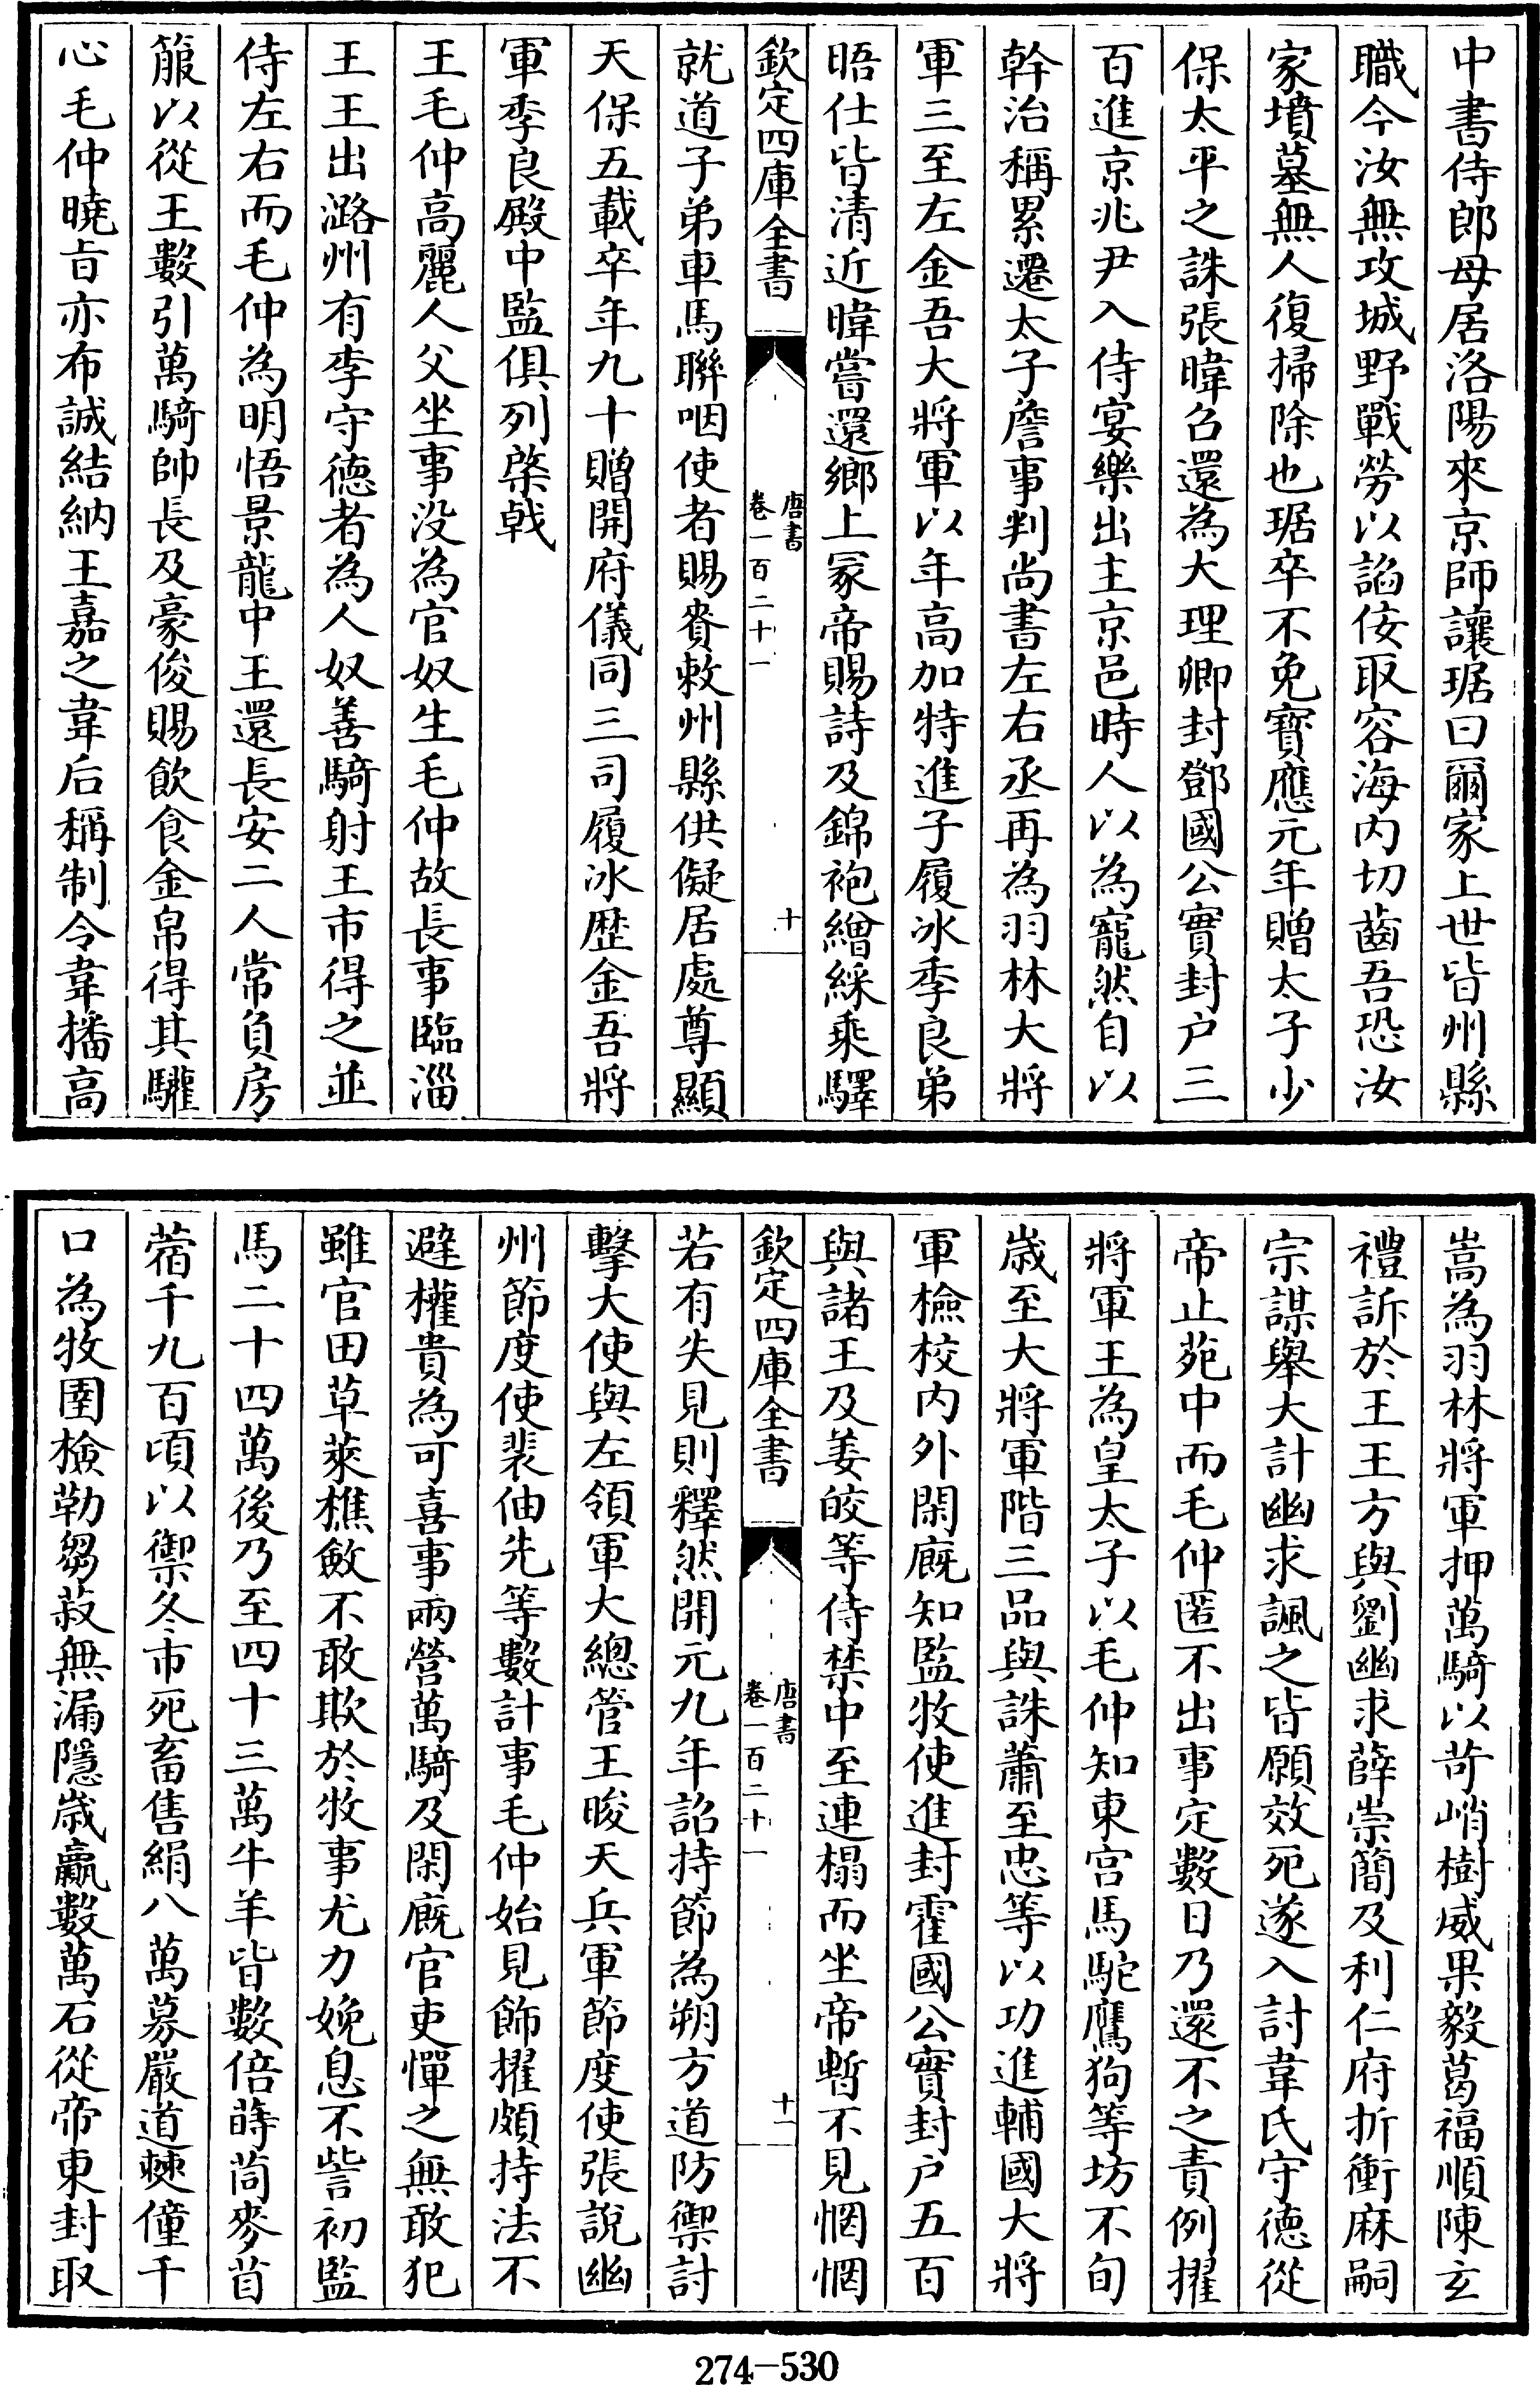 中書侍郎母居洛陽來京師讓琚曰爾家上世皆州縣
職今汝無攻城野戰勞以諂佞取容海内切齒吾恐汝
家墳墓無人復掃除也琚卒不免寶應元年贈太子少
保太平之誅張暐召還為大理卿封鄧國公實封户三
百進京兆尹入侍宴樂出主京邑時人以為寵然自以
幹治稱累遷太子詹事判尚書左右丞再為羽林大將
軍三至左金吾大將軍以年高加特進子履冰季良弟
晤仕皆清近暐嘗還鄉上冢帝賜詩及錦袍繒綵乘驛
欽定四庫全書
唐書
卷一百二十一
十
就道子弟車馬聯咽使者賜賚敕州縣供儗居處尊顯
天保五載卒年九十贈開府儀同三司履冰歴金吾將
軍季良殿中監俱列棨戟
王毛仲高麗人父坐事没為官奴生毛仲故長事臨淄
王王出潞州有李守德者為人奴善騎射王市得之並
侍左右而毛仲為明悟景龍中王還長安二人常負房
箙以從王數引萬騎帥長及豪俊賜飲食金帛得其驩
心毛仲曉旨亦布誠結納王嘉之韋后稱制令韋播高
嵩為羽林將軍押萬騎以苛峭樹威果毅葛福順陳玄
禮訴於王王方與劉幽求薛崇簡及利仁府折衝麻嗣
宗謀舉大計幽求諷之皆願效死遂入討韋氏守德從
帝止苑中而毛仲匿不出事定數日乃還不之責例擢
將軍王為皇太子以毛仲知東宫馬駝鷹狗等坊不旬
歲至大將軍階三品與誅蕭至忠等以功進輔國大將
軍檢校内外閑廐知監牧使進封霍國公實封户五百
與諸王及姜皎等侍禁中至連榻而坐帝暫不見惘惘
欽定四庫全書
唐書
卷一百二十一
十一
若有失見則釋然開元九年詔持節為朔方道防禦討
擊大使與左領軍大總管王晙天兵軍節度使張説幽
州節度使裴伷先等數計事毛仲始見飾擢頗持法不
避權貴為可喜事兩營萬騎及閑廐官吏憚之無敢犯
雖官田草萊樵斂不敢欺於牧事尤力娩息不訾初監
馬二十四萬後乃至四十三萬牛羊皆數倍蒔茼麥苜
蓿千九百頃以禦冬市死畜售絹八萬募嚴道𣝣僮千
口為牧圉檢勒芻菽無漏隱歲贏數萬石從帝東封取
274-530